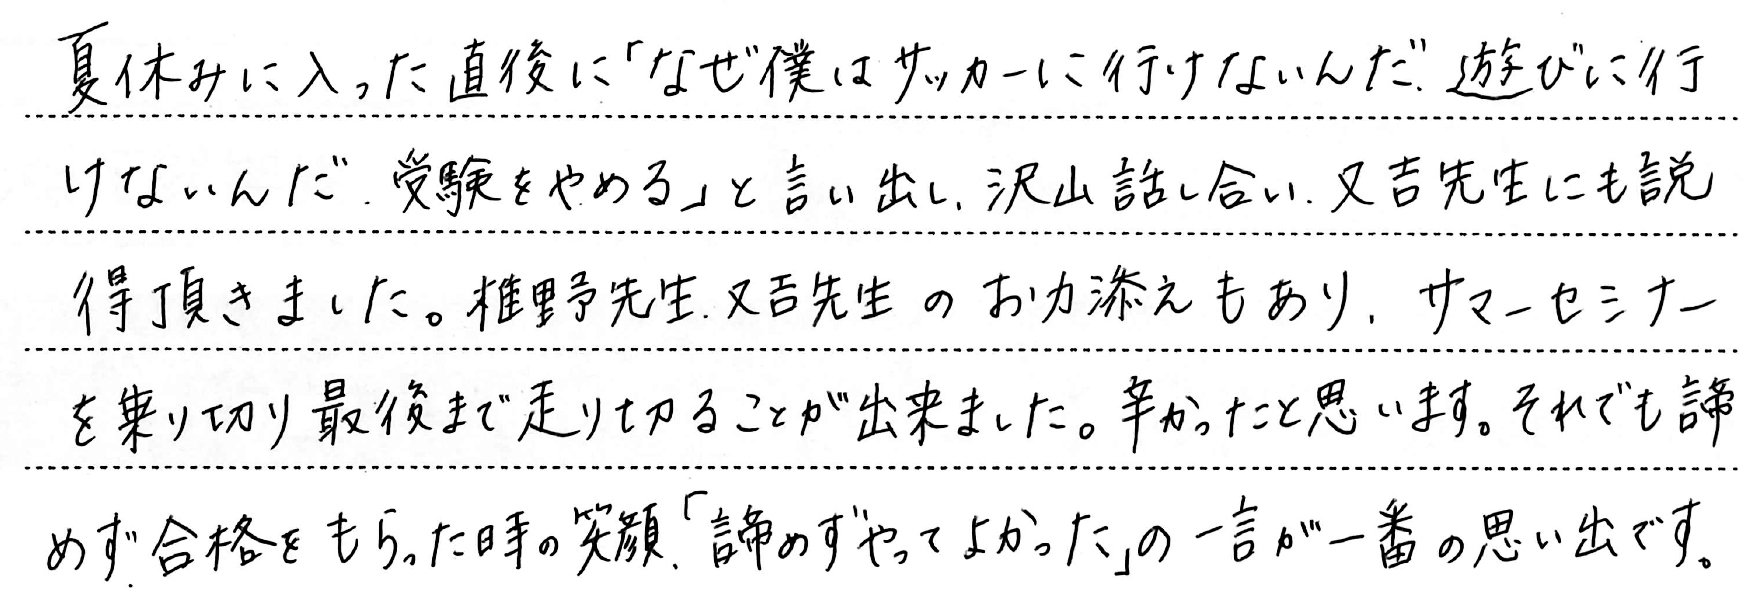 夏休みに入った直後に「なぜ僕はサッカーに行けないんだ、遊びに行
けないんだ、受験をやめる」と言い出し、沢山話し合い、又吉先生にも説
得頂きました。椎野先生、又吉先生のお力添えもあり、サマーセミナー
を乗り切り最後まで走り切ることが出来ました。辛かったと思います。それでも諦
めず合格をもらった時の笑顔、「諦めずやってよかった」の一言が一番の思い出です。